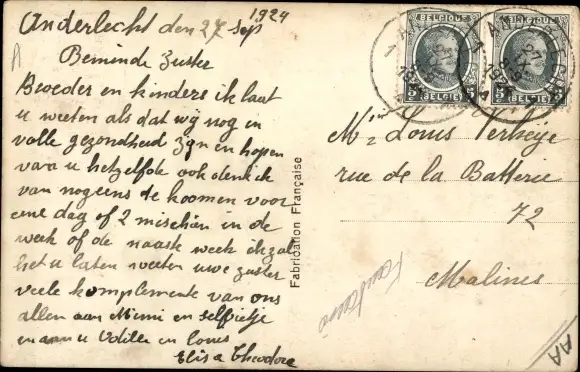 Anderlecht den 27 Sep 1924
Beminde Zuster
Broeder en kinders ik laat
u weeten als dat wij nog in
volle gezondheid zijn en hopen
van u hetzelfde ook denk ik
van nogeens te koomen voor
eene dag of 2 mischien in de
week of de naaste week ik zal
het u laten weeten uwe zuster
veele komplemente van ons
allen aan Mimi en selfietje
en aan u Odille en louis
Elisa Theodore
Fabrication Française
BELGIQUE
BELGIË
5 5
BELGIQUE
BELGIË
5
Mr Louis Verheije
rue de la Batterie
72
Malines
AA
A